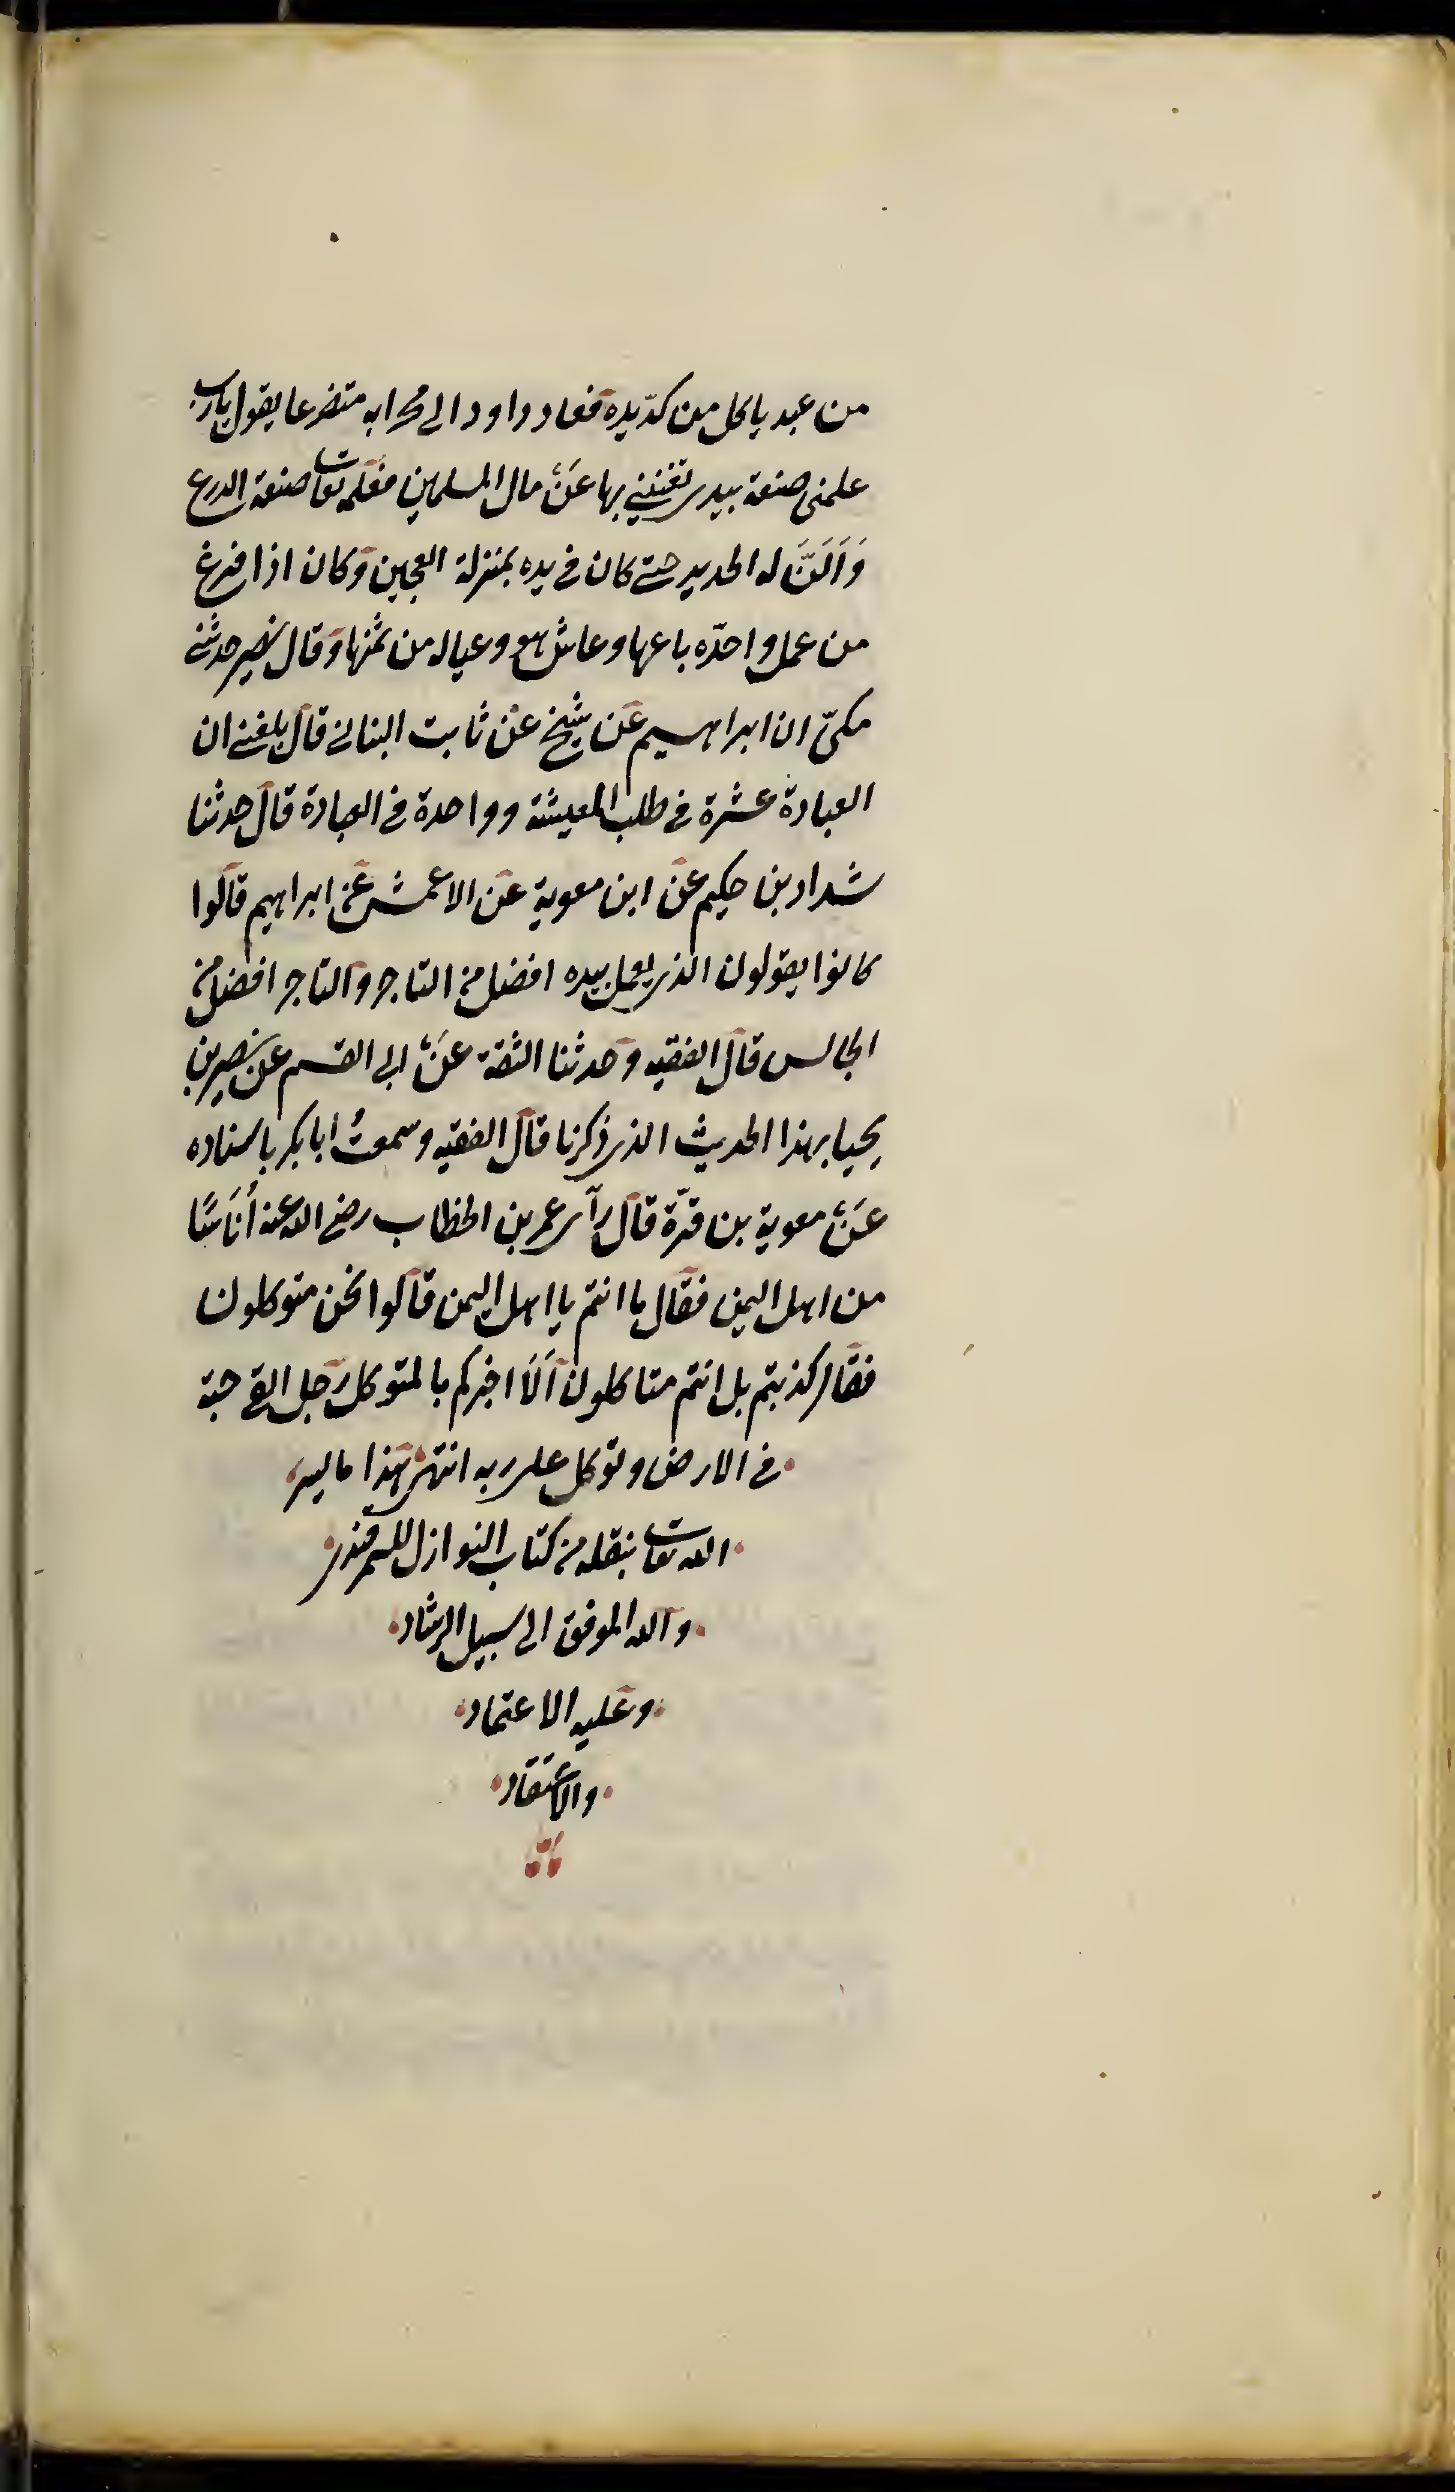 من عبد ياكل من كدّ يده فعاد داود الى محرابه متضرعا يقول يارب
علمنى صنعة بيدى تغنينى بها عن مال المسلمين فعلمه تعا صنعة الدرع
وَاَلَنَّ له الحديد حتى كان فى يده بمنزلة العجين وكان اذا فرغ
من عمل واحدة باعها وعاش هو وعياله من ثمنها وقال نصير حدثنى
مكىّ ان ابراهيم عن شيخ عن ثابت البنانى قال بلغنى ان
العبادة عشرة فى طلب المعيشة وواحدة فى العبادة قال حدثنا
شداد بن حكيم عن ابن معوية عن الاعمش عن ابراهيم قالوا
كانوا يقولون الذى يعمل بيده افضل من التاجر والتاجر افضل من
الجالس قال الفقيه وحدثنا الثقة عن ابى القسم عن نصير بن
يحيا بهذا الحديث الذى ذكرنا قال الفقيه وسمعتُ ابا بكر باسناده
عن معوية بن قرّة قال رآى عمر بن الخطاب رضى الله عنه اُنَاسًا
من اهل اليمن فقال ما انتم يا اهل اليمن قالوا نحن متوكلون
فقال كذبتم بل انتم متاكلون اَلَا اخبركم بالمتوكل رجل القى حبة
فى الارض وتوكل على ربه انتهى هذا ما يسر
الله تعا بنقله من كتاب النوازل للسمرقندى
والله الموفق الى سبيل الرشاد
وعليه الاعتماد